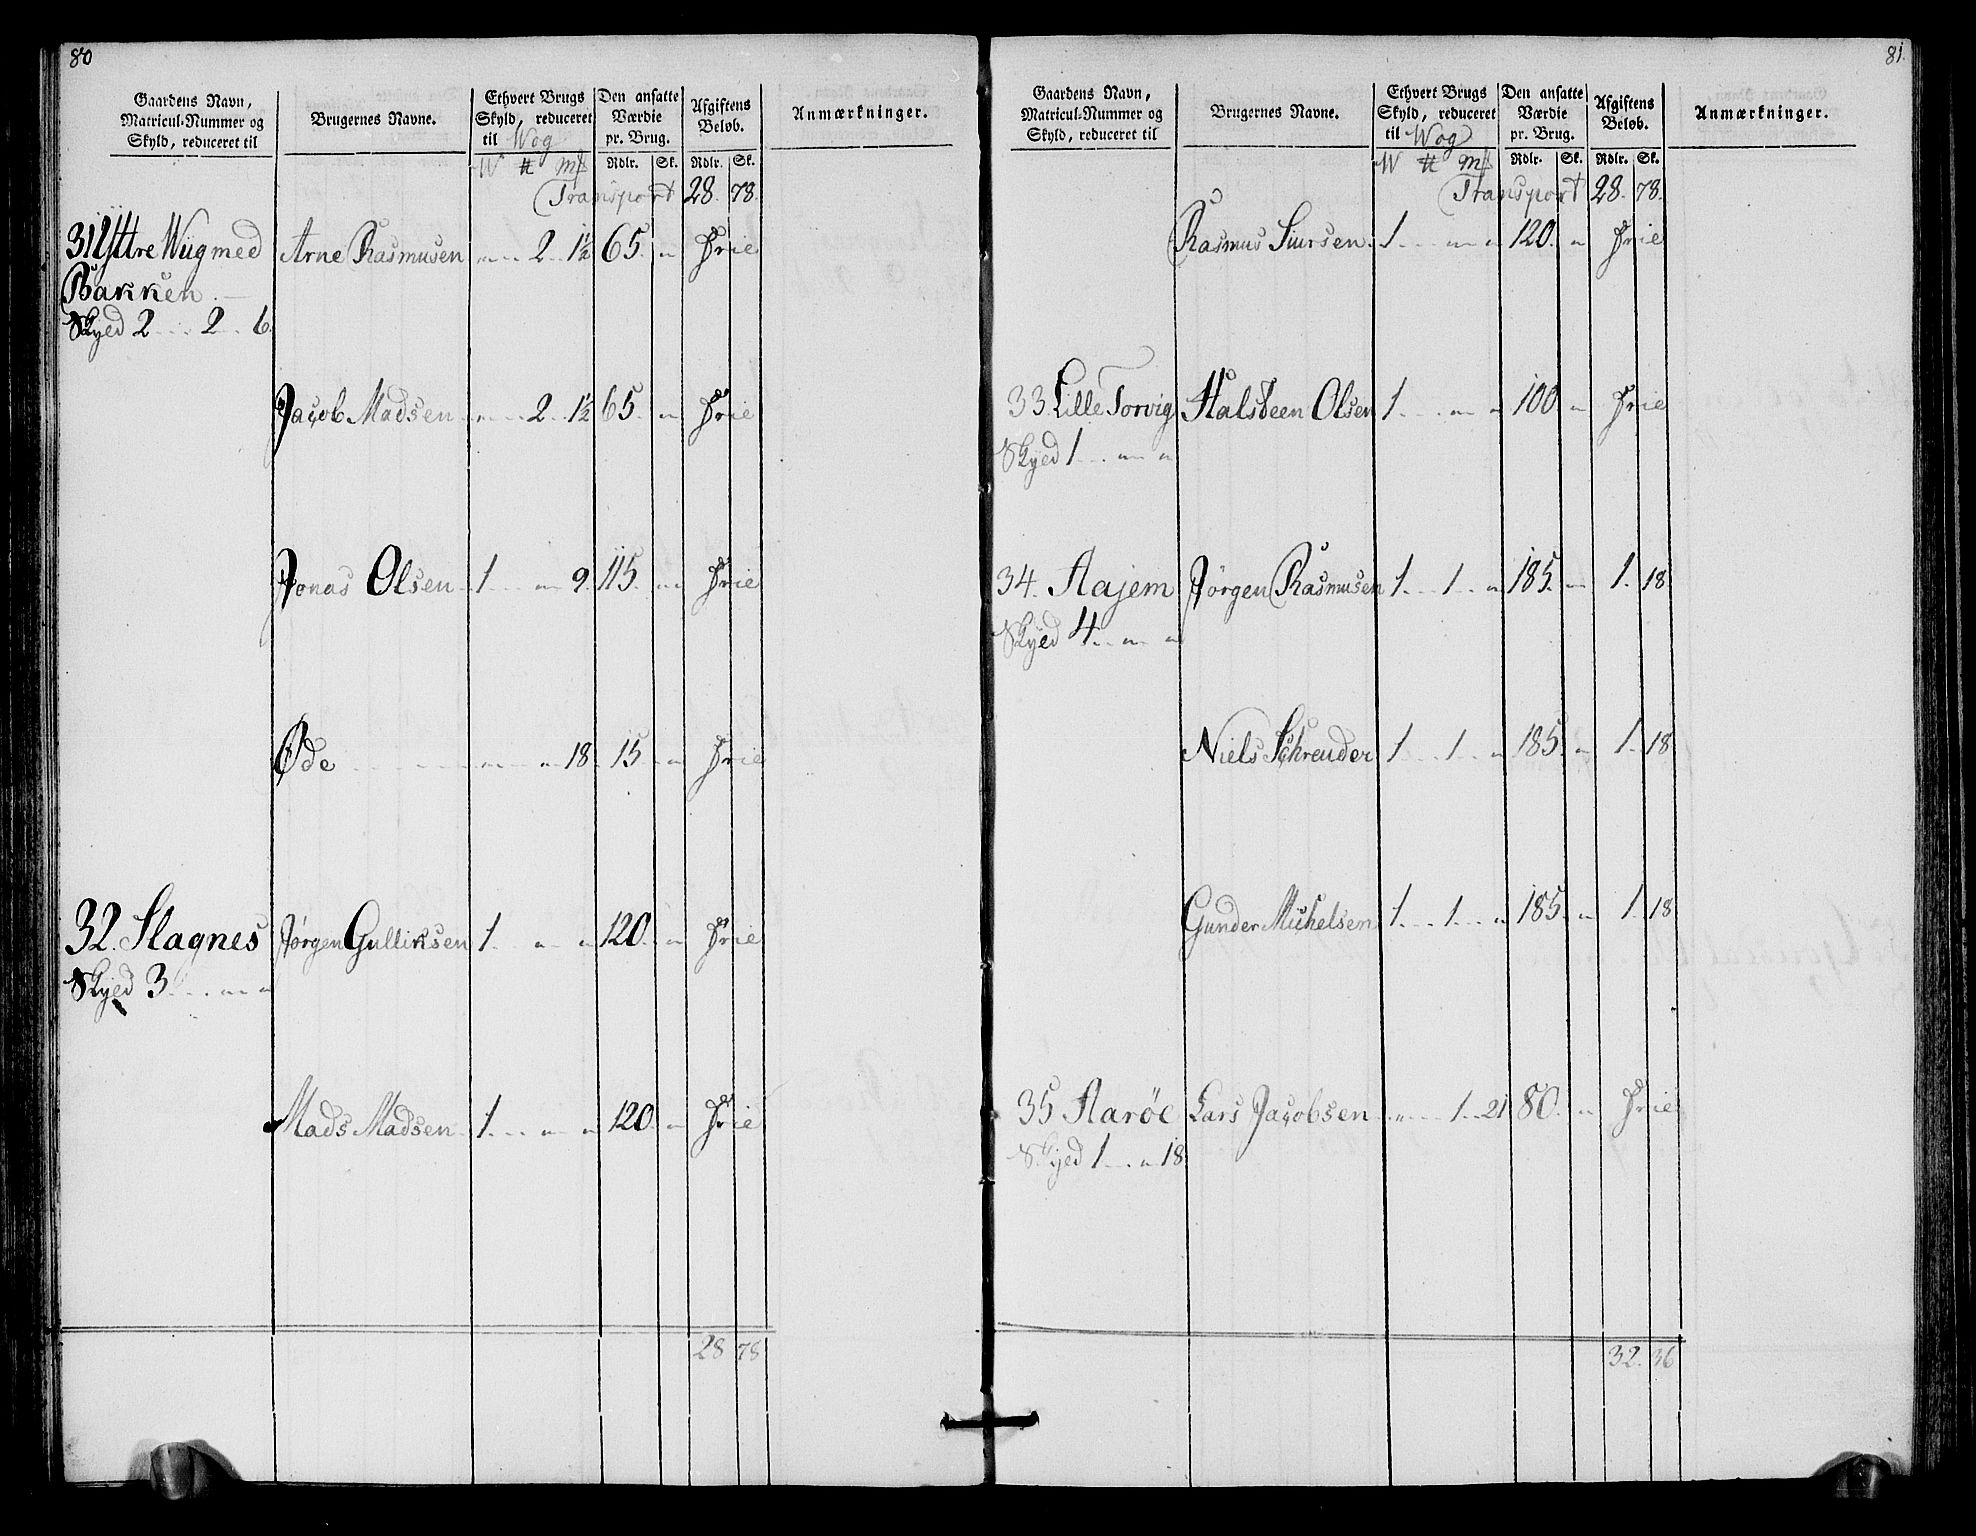 80
Gaardens Navn, Matricul-Nummer og Skyld, reduceret til
Brugernes Navne.
Ethvert Brugs Skyld, reduceret til Wog
Den ansatte Værdie pr. Brug.
Afgiftens Beløb.
Anmærkninger.
W ℔ mk Rdlr. Sk. Rdlr. Sk.
Transport 28. 78.
31 Yttre Wiig med Arne Rasmusen „ 2 1½ 65. „ Frie
Bakken
Skyed 2 2 6.
Jacob Madsen „ 2 1½ 65. „ Frie
Jonas Olsen 1 „ 9. 115. „ Frie
Øde „ „ 18. 15. „ Frie
32. Slagnes Jørgen Gulliksen 1 „ „ 120. „ Frie
Skyed 3 „ „
Mads Madsen 1 „ „ 120. „ Frie
28 78
81.
Gaardens Navn, Matricul-Nummer og Skyld, reduceret til
Brugernes Navne.
Ethvert Brugs Skyld, reduceret til Wog
Den ansatte Værdie pr. Brug.
Afgiftens Beløb.
Anmærkninger.
W ℔ mk Rdlr. Sk. Rdlr. Sk.
Transport 28. 78.
Rasmus Siursen 1 „ „ 120. „ Frie
33. Lille Torvig Halsteen Olsen 1 „ „ 100. „ Frie
Skyed 1 „ „
34. Aajem Jørgen Rasmusen 1 1 „ 185. „ 1. 18
Skyed 4 „ „
Niels Schreuder 1 1 „ 185. „ 1. 18
Gunder Michelsen 1 1 „ 185. „ 1. 18
35 Aarøe Lars Jacobsen „ 1 21 80. „ Frie
Skyed 1 „ 18.
32. 36